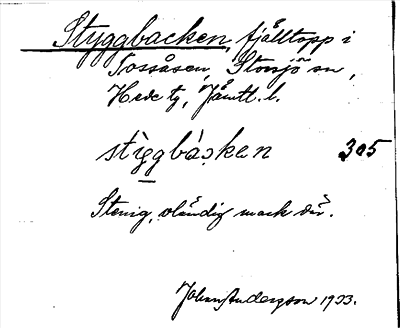 Styggbacken, fjälltopp i
Tossåsen, Storsjö sn,
Hede tg, Jämtl. l.
stìggbàcken 305
Stenig, oländig mark där.
Johan Andersson 1933.